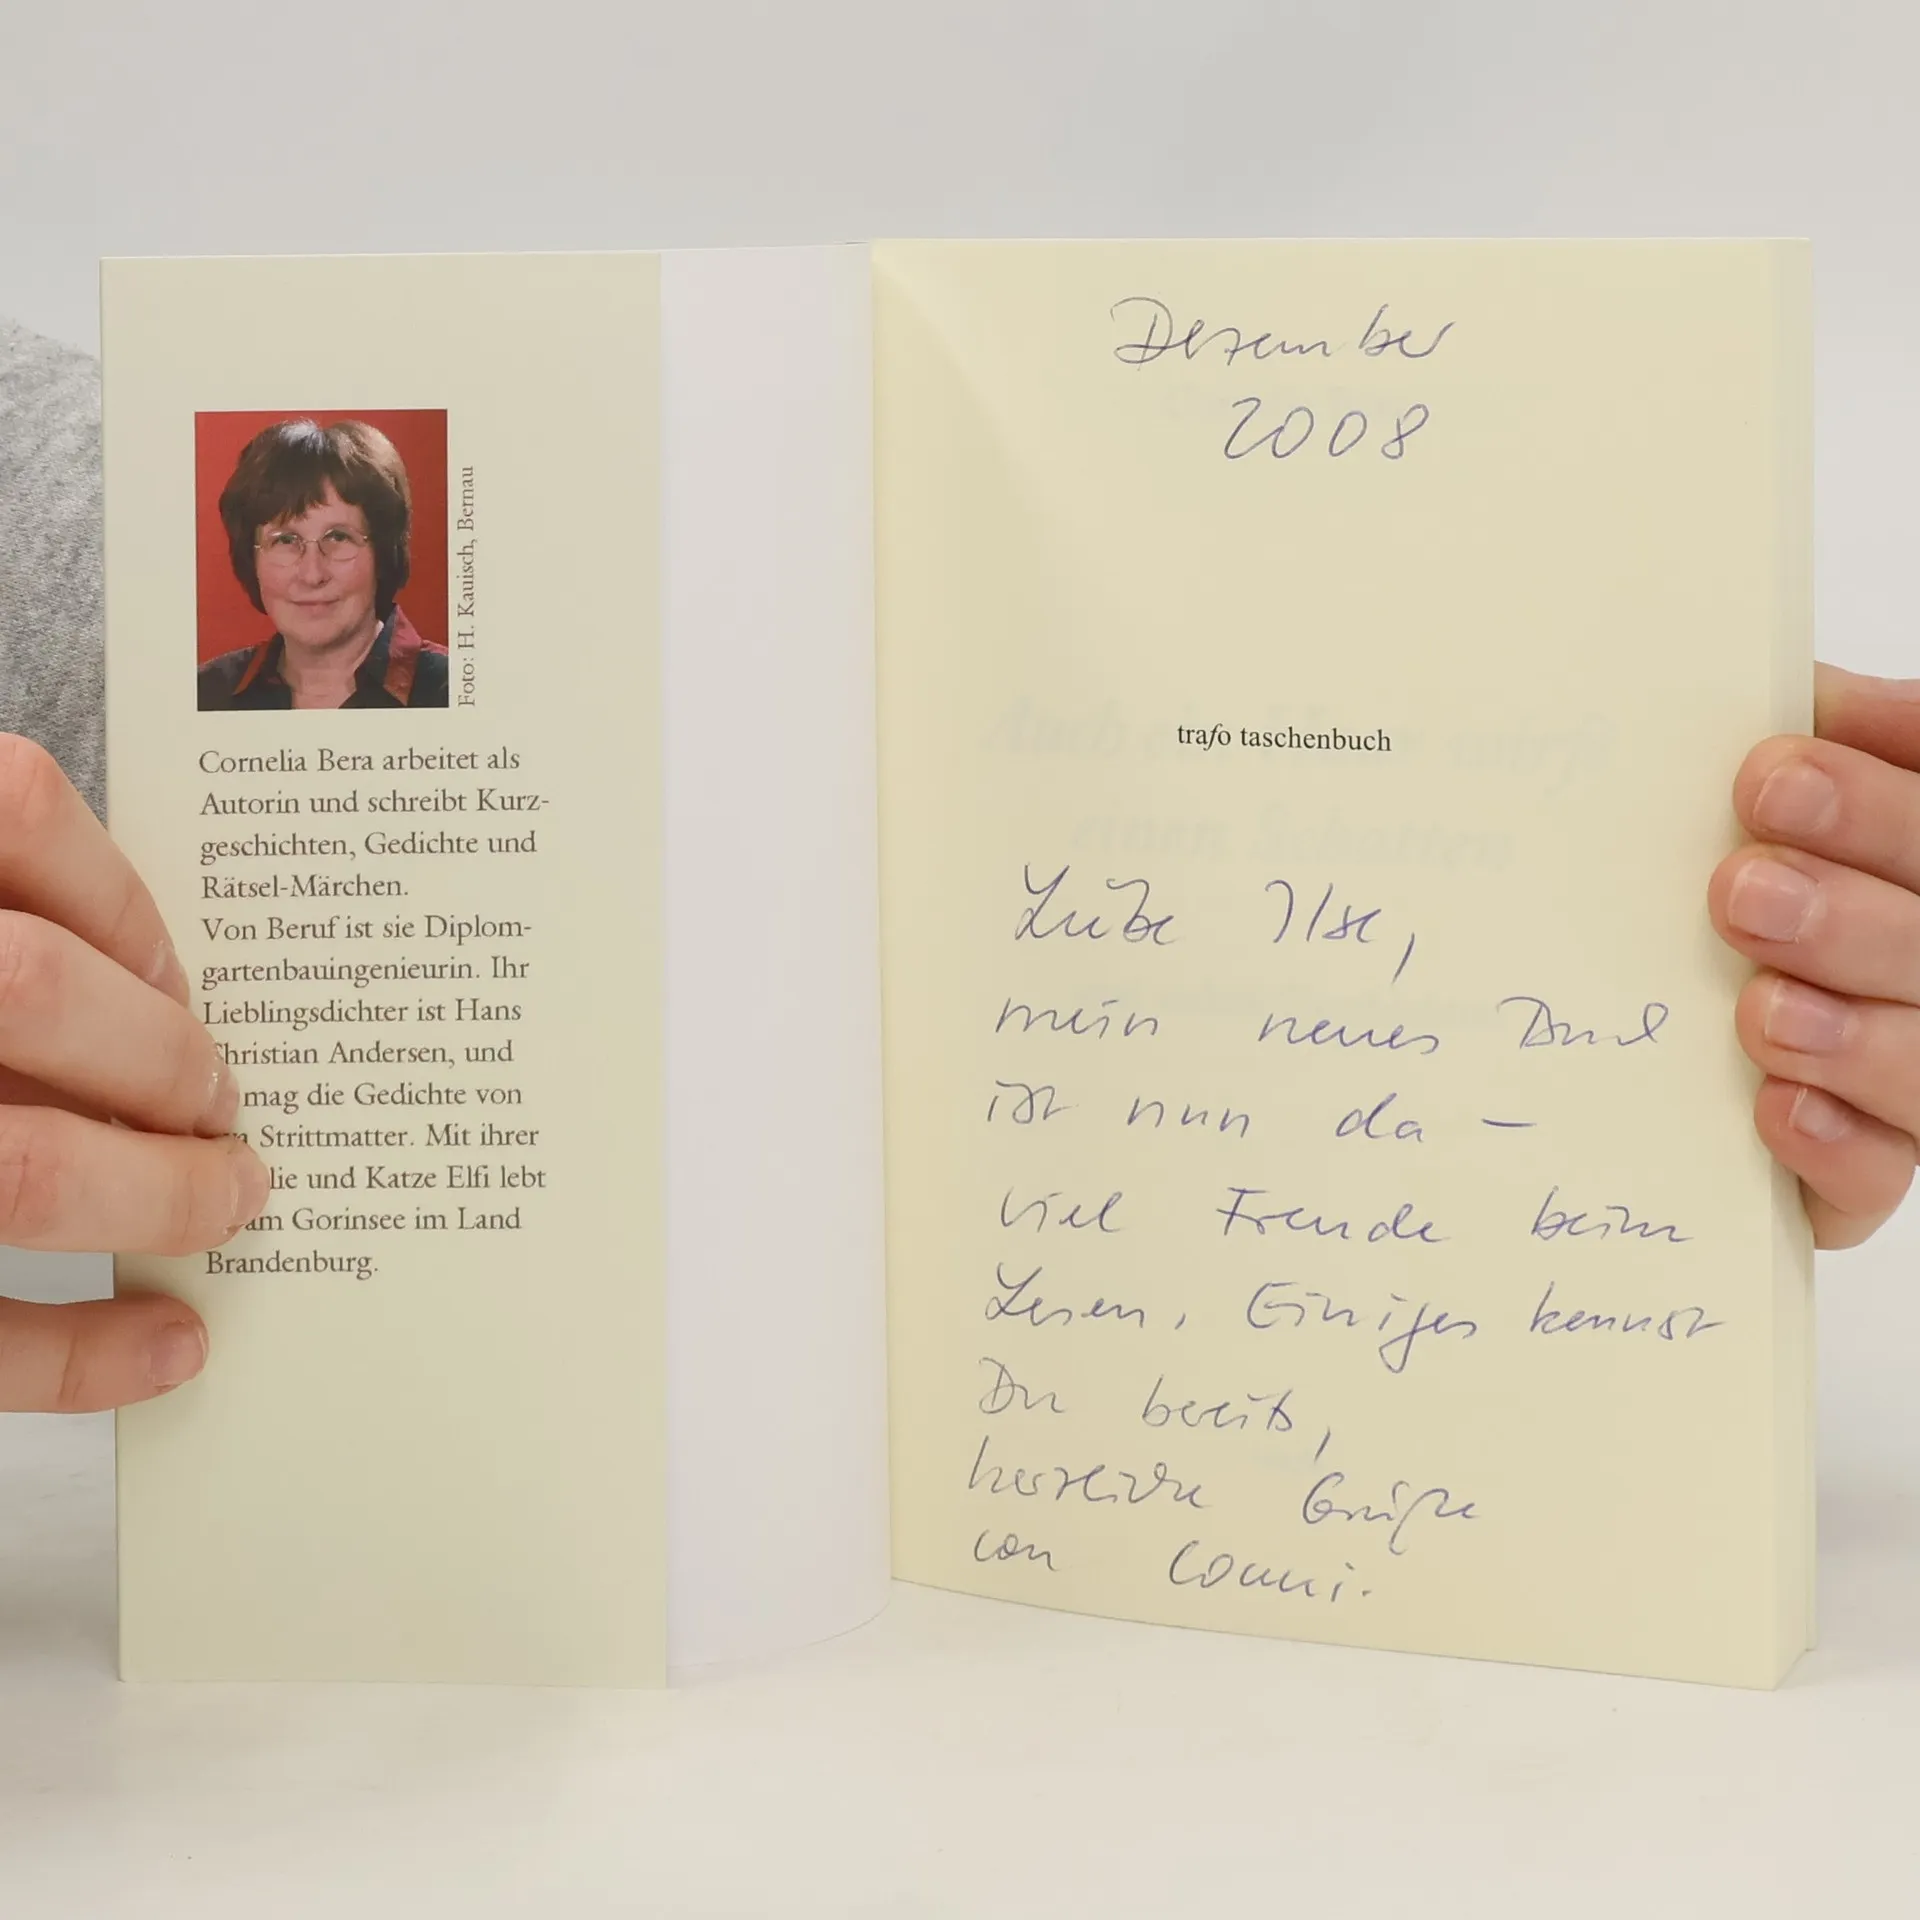 Foto: H. Kauisch, Bernau
Cornelia Bera arbeitet als
Autorin und schreibt Kurz-
geschichten, Gedichte und
Rätsel-Märchen.
Von Beruf ist sie Diplom-
gartenbauingenieurin. Ihr
Lieblingsdichter ist Hans
Christian Andersen, und
mag die Gedichte von
Strittmatter. Mit ihrer
lie und Katze Elfi lebt
am Gorinsee im Land
Brandenburg.
Dezember
2008
trafo taschenbuch
Auch ein Haar wirft
einen Schatten
Liebe Ilse,
mein neues
ist nun da –
viel Freude beim
Lesen, Einiges kennst
Du bereits,
herzliche Grüße
von Conni.